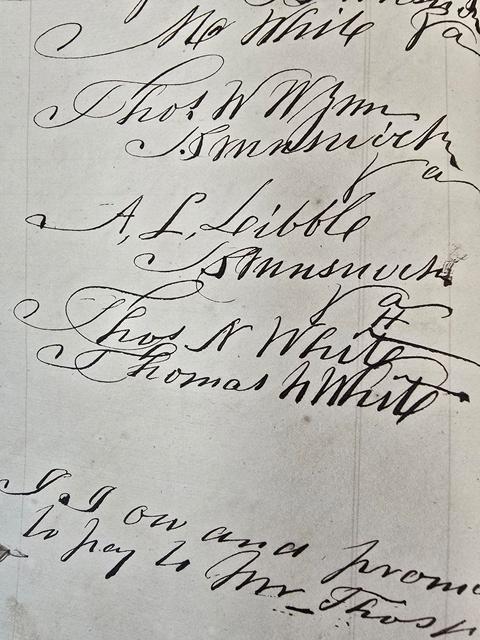 Mc White Va
Thos. W Wynn
Brunswick
Va
A, L, Leibble
Brunswick
Va
Thos N White
Thomas N White
I. I ow and prom
to pay to Mr Thos